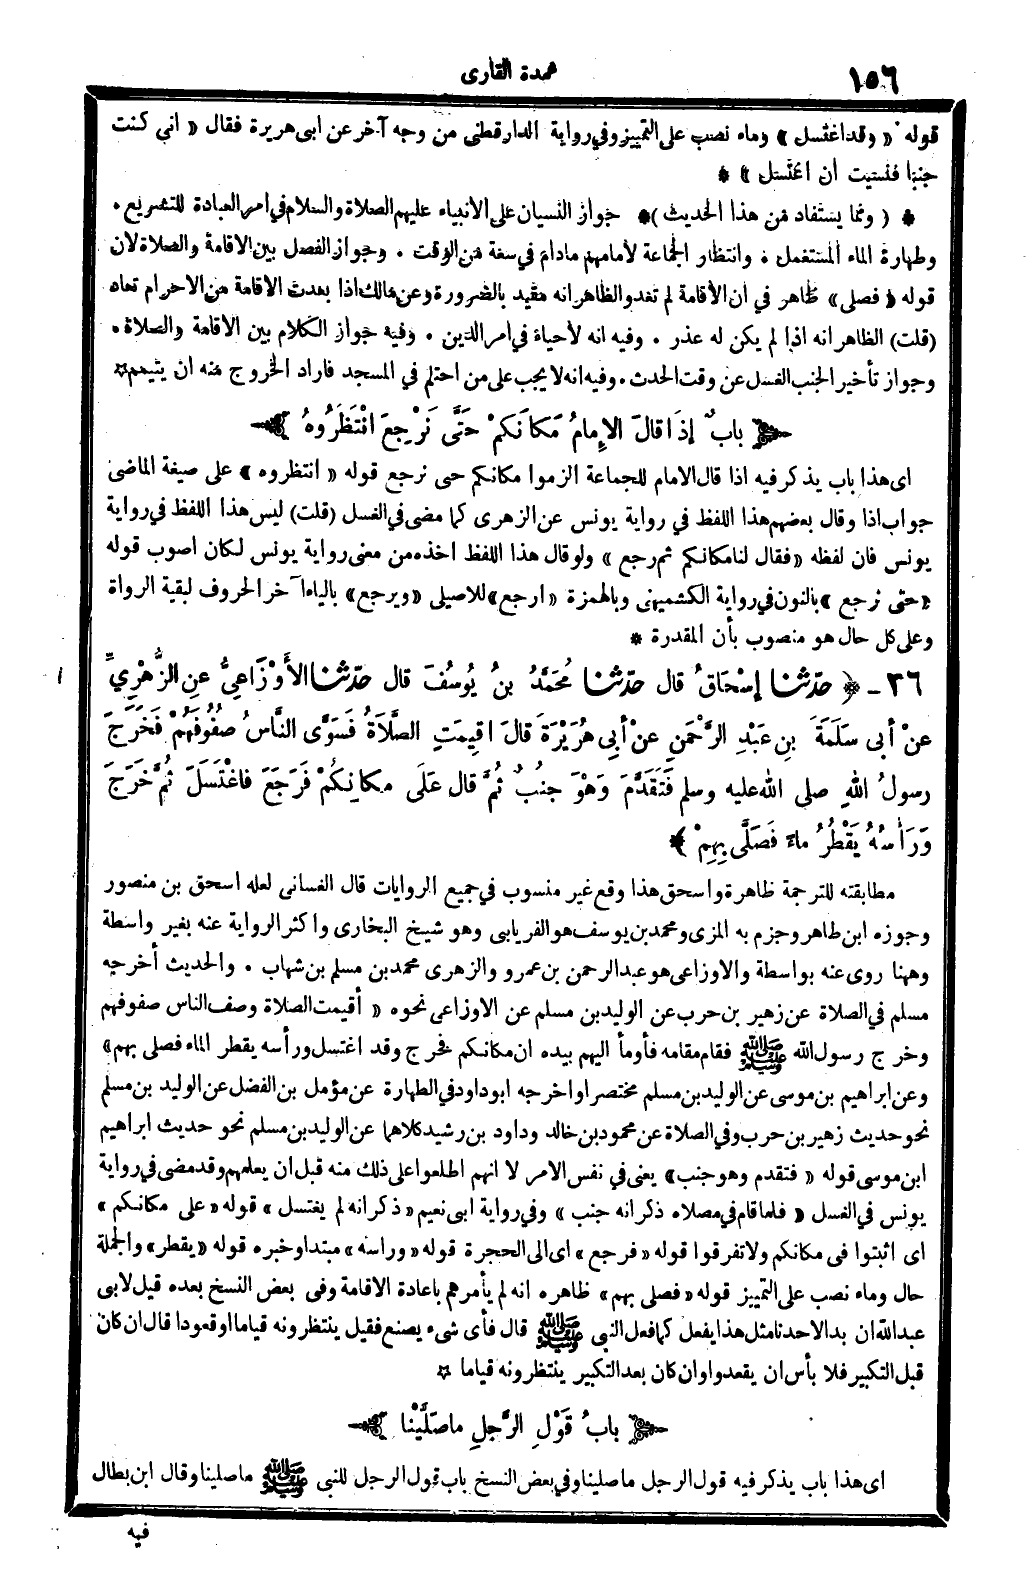 ١٥٦
عمدة القارى
قوله « وقد اغتسل » وماء نصب على التمييز وفي رواية الدارقطنى من وجه آخر عن ابى هريرة فقال « انى كنت
جنبا فنسيت أن اغتسل » *
* ( ومما يستفاد من هذا الحديث ) * جواز النسيان على الأنبياء عليهم الصلاة والسلام في امر العبادة للتشريع .
وطهارة الماء المستعمل . وانتظار الجماعة لأمامهم مادام في سعة من الوقت . وجواز الفصل بين الاقامة والصلاة لان
قوله « فصلى » ظاهر في ان الأقامة لم تعد والظاهر انه مقيد بالضرورة وعن مالك اذا بعدت الاقامة من الاحرام تعاد
(قلت) الظاهر انه اذا لم يكن له عذر . وفيه انه لأحياء في امر الدين . وفيه جواز الكلام بين الاقامة والصلاة .
وجواز تأخير الجنب الغسل عن وقت الحدث . وفيه انه لا يجب على من احتلم في المسجد فاراد الخروج منه ان يتيمم *
﴿ بابٌ إذَا قالَ الإِمامُ مَكانَكمْ حَتَّى نَرْجِعَ انْتَظَرُوهُ ﴾
اى هذا باب يذكر فيه اذا قال الامام للجماعة الزموا مكانكم حتى نرجع قوله « انتظروه » على صيغة الماضى
جواب اذا وقال بعضهم هذا اللفظ في رواية يونس عن الزهرى كما مضى في الغسل (قلت) ليس هذا اللفظ في رواية
يونس فان لفظه « فقال لنا مكانكم ثم رجع » ولو قال هذا اللفظ اخذه من معنى رواية يونس لكان اصوب قوله
« حتى نرجع » بالنون في رواية الكشميهنى وبالهمزة « ارجع » للاصيلى « ويرجع » بالياء آخر الحروف لبقية الرواة
وعلى كل حال هو منصوب بأن المقدرة *
٣٦ - ﴿ حدّثنا إسْحَاقُ قال حدّثنا مُحَمَّدُ بنُ يُوسُفَ قال حدّثنا الأَوْزَاعِىُّ عنِ الزُّهْرِيِّ
عنْ أبى سَلَمَةَ بنِ عَبْدِ الرَّحْمَنِ عنْ أبِى هُرَيْرَةَ قالَ اقِيمَتِ الصَّلَاةُ فَسَوَّى النَّاسُ صُفُوفَهُمْ فَخَرَجَ
رسولُ اللهِ صلى الله عليه وسلم فَتَقَدَّمَ وَهْوَ جنُبٌ ثُمَّ قال عَلَى مكانِكُمْ فَرَجَعَ فاغْتَسَلَ ثُمَّ خَرَجَ
وَرَأسُهُ يَقْطُرُ ماءً فَصَلَّى بِهِمْ ﴾
مطابقته للترجمة ظاهرة واسحق هذا وقع غير منسوب في جميع الروايات قال الغسانى لعله اسحق بن منصور
وجوزه ابن طاهر وجزم به المزى ومحمد بن يوسف هو الفريابى وهو شيخ البخارى واكثر الرواية عنه بغير واسطة
وههنا روى عنه بواسطة والاوزاعى هو عبد الرحمن بن عمرو والزهرى محمد بن مسلم بن شهاب . والحديث أخرجه
مسلم في الصلاة عن زهير بن حرب عن الوليد بن مسلم عن الاوزاعى نحوه « أقيمت الصلاة وصف الناس صفوفهم
وخرج رسول الله ﷺ فقام مقامه فأومأ اليهم بيده ان مكانكم فخرج وقد اغتسل ورأسه يقطر الماء فصلى بهم »
وعن ابراهيم بن موسى عن الوليد بن مسلم مختصرا واخرجه ابو داود في الطهارة عن مؤمل بن الفضل عن الوليد بن مسلم
نحو حديث زهير بن حرب وفي الصلاة عن محمود بن خالد وداود بن رشيد كلاهما عن الوليد بن مسلم نحو حديث ابراهيم
ابن موسى قوله « فتقدم وهو جنب » يعنى في نفس الامر لا انهم اطلعوا على ذلك منه قبل ان يعلمهم وقد مضى في رواية
يونس في الغسل « فلما قام في مصلاه ذكر انه جنب » وفي رواية ابى نعيم « ذكر انه لم يغتسل » قوله « على مكانكم »
اى اثبتوا فى مكانكم ولا تفرقوا قوله « فرجع » اى الى الحجرة قوله « وراسه » مبتدا وخبره قوله « يقطر » والجملة
حال وماء نصب على التمييز قوله « فصلى بهم » ظاهره انه لم يأمرهم باعادة الاقامة وفى بعض النسخ بعده قيل لابى
عبد الله ان بدا لاحدنا مثل هذا يفعل كما فعل النبى ﷺ قال فأى شىء يصنع فقيل ينتظرونه قياما او قعودا قال ان كان
قبل التكبير فلا بأس ان يقعدوا وان كان بعد التكبير ينتظرونه قياما *
﴿ بابُ قَوْلِ الرَّجلِ ماصَلَّيْنا ﴾
اى هذا باب يذكر فيه قول الرجل ماصلينا وفي بعض النسخ باب قول الرجل للنبى ﷺ ماصلينا وقال ابن بطال
فيه